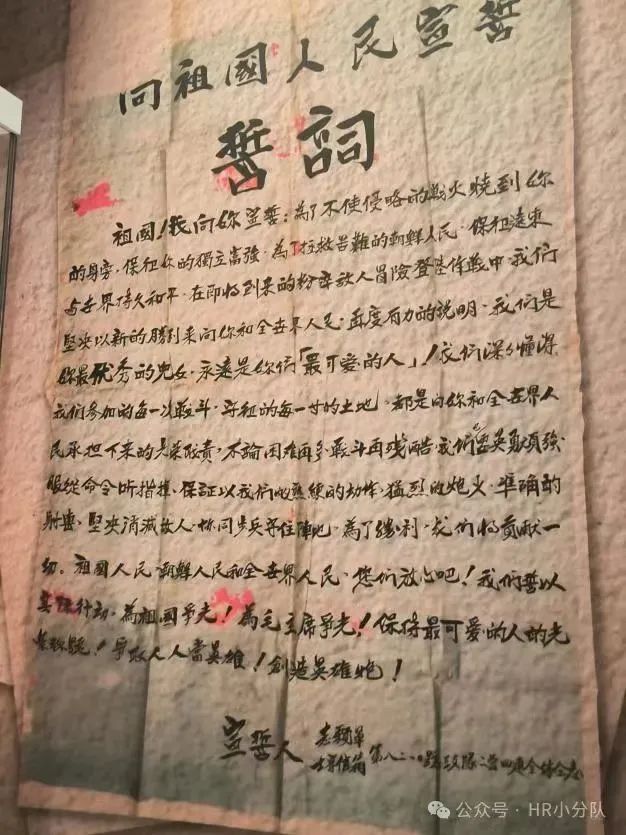 向祖國人民宣誓
誓詞
祖國！我向你宣誓：為了不使侵略的戰火燒到你
的身旁，保征你的獨立富強，為了拯救苦難的朝鮮人民，保征遠東
与世界持久和平，在即将到来的粉碎敌人冒險登陸作戰中，我們
堅决以新的勝利来向你和全世界人民，再度有力的說明，我們是
你最优秀的兒女，永遠是你們「最可爱的人」！我們深々懂得
我們参加的每一次戰斗，守征的每一寸的土地，都是向你和全世界人
民承担下来的光荣職責，不論困难再多戰斗再残酷，我們要英勇頑強
服從命令听指揮，保証以我們地熟練的动作，猛烈的炮火，準確的
射击，堅决消滅敌人，协同步兵守住陣地，為了勝利，我們将貢献一
切。祖國人民，朝鮮人民和全世界人民，您們放心吧！我們誓以
实际行动，為祖國爭光！為毛主席爭光！保持最可愛的人的光
荣称号！爭取人人當英雄！創造英雄炮！
宣誓人
志願軍
士專信箱 第八二一〇號 二营四連全体
公众号·HR小分队